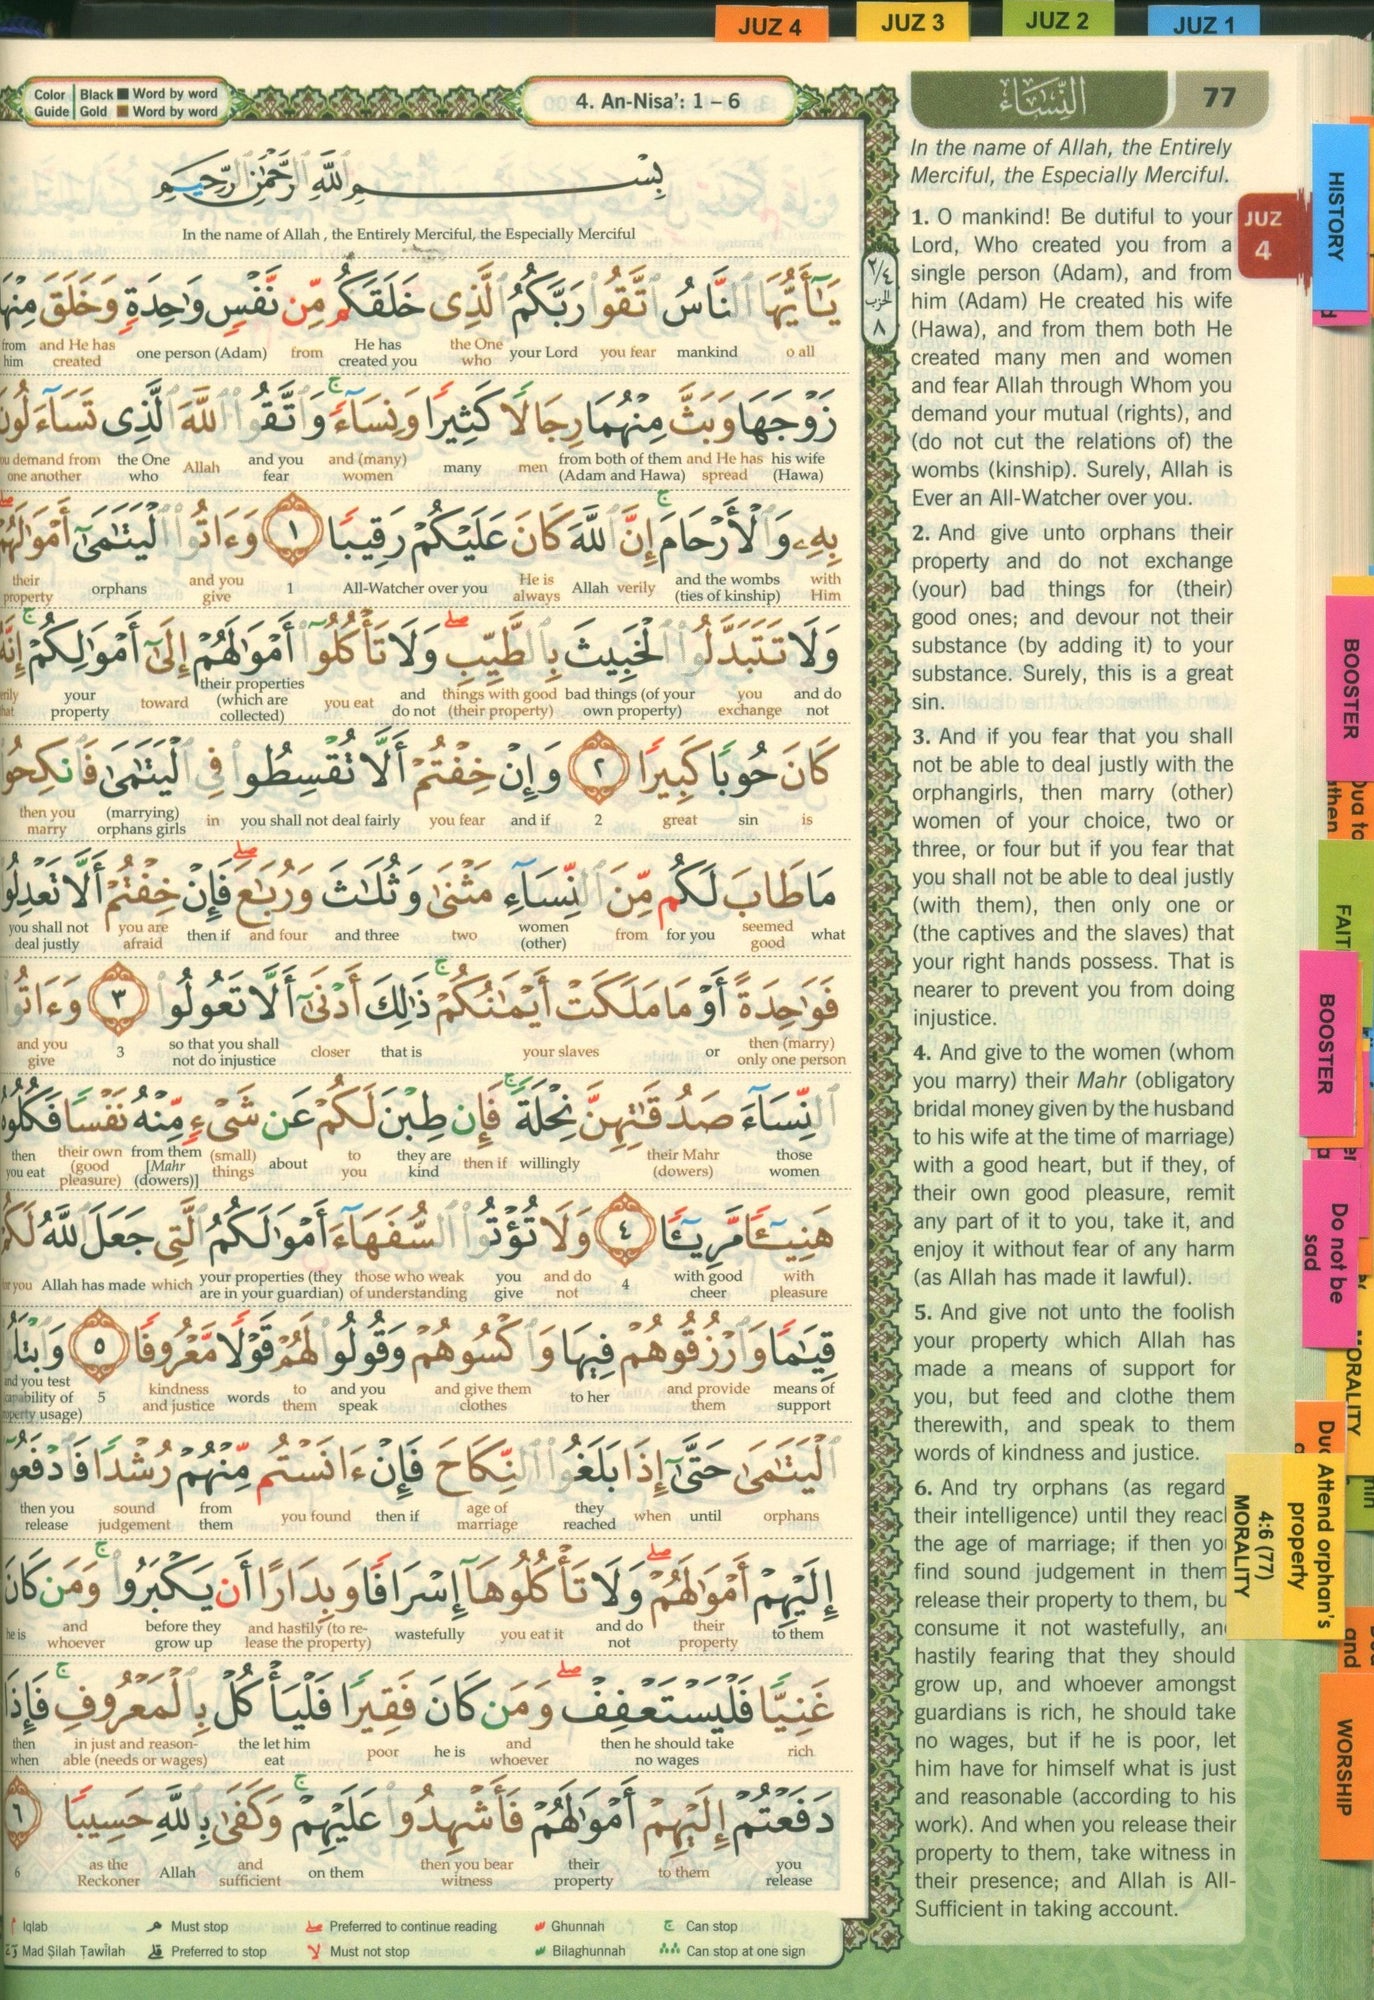 JUZ 4
JUZ 3
JUZ 2
JUZ 1
Color Guide
Black Word by word
Gold Word by word
4. An-Nisa’: 1 – 6
النِّسَاء
77
بِسْمِ اللَّهِ الرَّحْمَٰنِ الرَّحِيمِ
In the name of Allah , the Entirely Merciful, the Especially Merciful
يَـٰٓأَيُّهَا ٱلنَّاسُ ٱتَّقُوا۟ رَبَّكُمُ ٱلَّذِى خَلَقَكُم مِّن نَّفْسٍ وَٰحِدَةٍ وَخَلَقَ مِنْهَا
o all
mankind
you fear
your Lord
the One who
He has created you
from
one person (Adam)
and He has created
from him
زَوْجَهَا وَبَثَّ مِنْهُمَا رِجَالًا كَثِيرًا وَنِسَآءً ۚ وَٱتَّقُوا۟ ٱللَّهَ ٱلَّذِى تَسَآءَلُونَ
his wife (Hawa)
and He has spread
from both of them (Adam and Hawa)
men
many
and (many) women
and you fear
Allah
the One who
demand from one another
بِهِۦ وَٱلْأَرْحَامَ ۚ إِنَّ ٱللَّهَ كَانَ عَلَيْكُمْ رَقِيبًا ١ وَءَاتُوا۟ ٱلْيَتَـٰمَىٰٓ أَمْوَٰلَهُمْ ۖ
with Him
and the wombs (ties of kinship)
verily
Allah
He is always
All-Watcher over you
1
and you give
orphans
their property
وَلَا تَتَبَدَّلُوا۟ ٱلْخَبِيثَ بِٱلطَّيِّبِ ۖ وَلَا تَأْكُلُوٓا۟ أَمْوَٰلَهُمْ إِلَىٰٓ أَمْوَٰلِكُمْ ۚ إِنَّهُۥ
and do not
you exchange
bad things (of your own property)
things with good (their property)
and do not
you eat
their properties (which are collected)
toward
your property
كَانَ حُوبًا كَبِيرًا ٢ وَإِنْ خِفْتُمْ أَلَّا تُقْسِطُوا۟ فِى ٱلْيَتَـٰمَىٰ فَٱنكِحُوا۟
is
sin
great
2
and if
you fear
you shall not deal fairly
in
(marrying) orphans girls
then you marry
مَا طَابَ لَكُم مِّنَ ٱلنِّسَآءِ مَثْنَىٰ وَثُلَـٰثَ وَرُبَـٰعَ ۖ فَإِنْ خِفْتُمْ أَلَّا تَعْدِلُوا۟
what
seemed good
for you
from
women (other)
two
and three
and four
then if
you are afraid
you shall not deal justly
فَوَٰحِدَةً أَوْ مَا مَلَكَتْ أَيْمَـٰنُكُمْ ۚ ذَٰلِكَ أَدْنَىٰٓ أَلَّا تَعُولُوا۟ ٣ وَءَاتُوا۟
then (marry) only one person
or
your slaves
that is
closer
so that you shall not do injustice
3
and you give
ٱلنِّسَآءَ صَدُقَـٰتِهِنَّ نِحْلَةً ۚ فَإِن طِبْنَ لَكُمْ عَن شَىْءٍ مِّنْهُ نَفْسًا فَكُلُوهُ
those women
their Mahr (dowers)
willingly
then if
they are kind
to you
about
(small) things
from them [Mahr (dowers)]
their own (good pleasure)
then you eat
هَنِيٓـًٔا مَّرِيٓـًٔا ٤ وَلَا تُؤْتُوا۟ ٱلسُّفَهَآءَ أَمْوَٰلَكُمُ ٱلَّتِى جَعَلَ ٱللَّهُ لَكُمْ
with pleasure
with good cheer
4
and do not
you give
those who weak of understanding
your properties (they are in your guardian)
which
Allah has made
you
قِيَـٰمًا وَٱرْزُقُوهُمْ فِيهَا وَٱكْسُوهُمْ وَقُولُوا۟ لَهُمْ قَوْلًا مَّعْرُوفًا ٥ وَٱبْتَلُوا۟
means of support
and provide them
to her
and give them clothes
and you speak
to them
words
kindness and justice
5
you test capability of usage)
ٱلْيَتَـٰمَىٰ حَتَّىٰٓ إِذَا بَلَغُوا۟ ٱلنِّكَاحَ فَإِنْ ءَانَسْتُم مِّنْهُمْ رُشْدًا فَٱدْفَعُوٓا۟
orphans
until
when
they reached
age of marriage
then if
you found
from them
sound judgement
then you release
إِلَيْهِمْ أَمْوَٰلَهُمْ ۖ وَلَا تَأْكُلُوهَآ إِسْرَافًا وَبِدَارًا أَن يَكْبَرُوا۟ ۚ وَمَن كَانَ
to them
their property
and do not
you eat it
wastefully
and hastily (to release the property)
before they grow up
and whoever
he is
غَنِيًّا فَلْيَسْتَعْفِفْ ۖ وَمَن كَانَ فَقِيرًا فَلْيَأْكُلْ بِٱلْمَعْرُوفِ ۚ فَإِذَا
rich
then he should take no wages
and whoever
he is
poor
the let him eat
in just and reason-able (needs or wages)
then when
دَفَعْتُمْ إِلَيْهِمْ أَمْوَٰلَهُمْ فَأَشْهِدُوا۟ عَلَيْهِمْ ۚ وَكَفَىٰ بِٱللَّهِ حَسِيبًا ٦
you release
to them
their property
then you bear witness
on them
and sufficient
Allah
as the Reckoner
6
Iqlab
Must stop
Preferred to continue reading
Ghunnah
Can stop
Mad Silah Tawilah
Preferred to stop
Must not stop
Bilaghunnah
Can stop at one sign
٢/٤
الحزب
٨
In the name of Allah, the Entirely
Merciful, the Especially Merciful.
1. O mankind! Be dutiful to your
Lord, Who created you from a
single person (Adam), and from
him (Adam) He created his wife
(Hawa), and from them both He
created many men and women
and fear Allah through Whom you
demand your mutual (rights), and
(do not cut the relations of) the
wombs (kinship). Surely, Allah is
Ever an All-Watcher over you.
2. And give unto orphans their
property and do not exchange
(your) bad things for (their)
good ones; and devour not their
substance (by adding it) to your
substance. Surely, this is a great
sin.
3. And if you fear that you shall
not be able to deal justly with the
orphangirls, then marry (other)
women of your choice, two or
three, or four but if you fear that
you shall not be able to deal justly
(with them), then only one or
(the captives and the slaves) that
your right hands possess. That is
nearer to prevent you from doing
injustice.
4. And give to the women (whom
you marry) their Mahr (obligatory
bridal money given by the husband
to his wife at the time of marriage)
with a good heart, but if they, of
their own good pleasure, remit
any part of it to you, take it, and
enjoy it without fear of any harm
(as Allah has made it lawful).
5. And give not unto the foolish
your property which Allah has
made a means of support for
you, but feed and clothe them
therewith, and speak to them
words of kindness and justice.
6. And try orphans (as regard
their intelligence) until they reach
the age of marriage; if then you
find sound judgement in them
release their property to them, but
consume it not wastefully, and
hastily fearing that they should
grow up, and whoever amongst
guardians is rich, he should take
no wages, but if he is poor, let
him have for himself what is just
and reasonable (according to his
work). And when you release their
property to them, take witness in
their presence; and Allah is All-
Sufficient in taking account.
JUZ
4
HISTORY
BOOSTER
FAIT
BOOSTER
Do not be
sad
MORALITY
Attend orphan's
property
4:6 (77)
MORALITY
WORSHIP